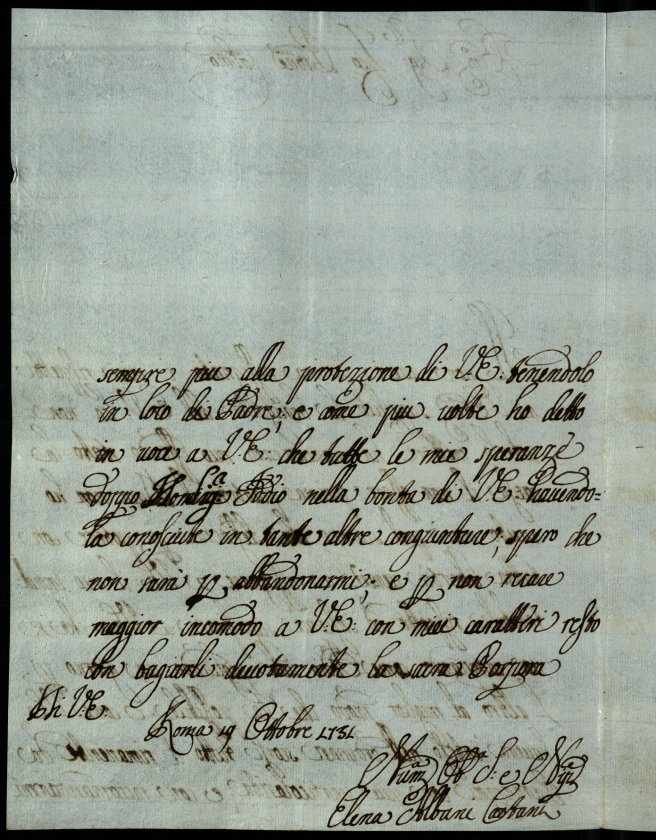 sempre piu alla protezione di V.E. tenendolo
in loco di Padre, e come piu volte ho detto
in voce a V.E. che tutte le mie speranze
doppo Iddio nella bontà di V.E. havendo=
la conosciuta in tante altre congiunture, spero che
non sarà p abbandonarmi; e p non recare
maggior incomodo a V.E. con miei caratteri resto
con bagiarli devotamente la sacra Porpora
Di V.E.
Roma 19 Ottobre 1731
Elena Albani